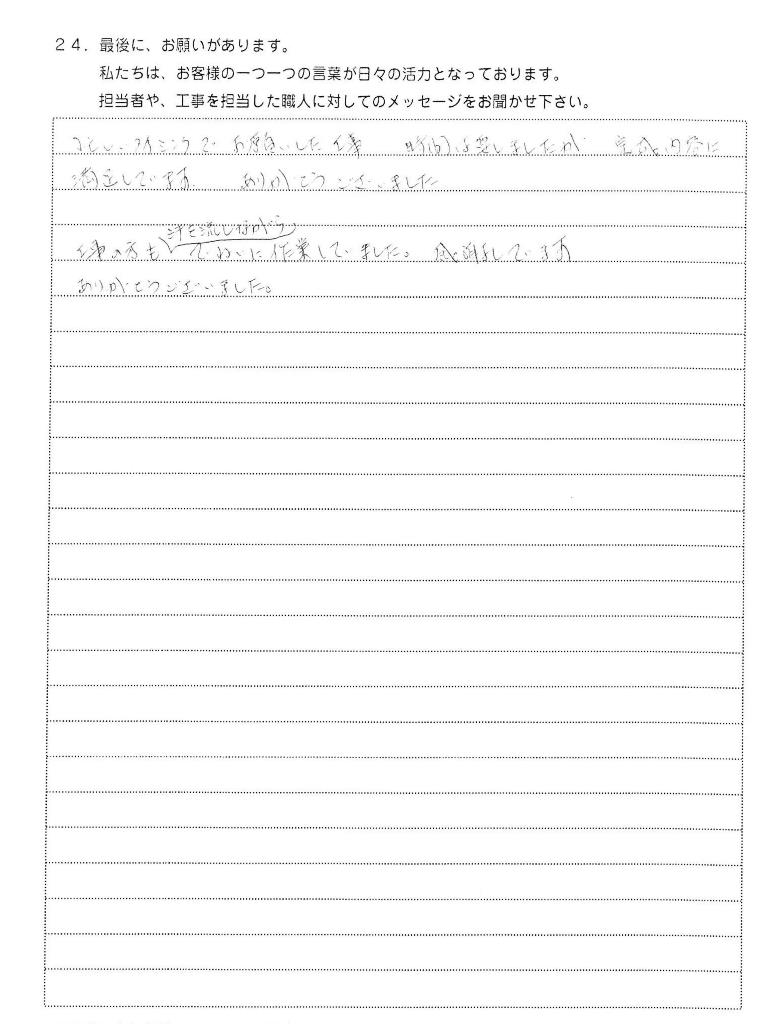 ２４．最後に、お願いがあります。
私たちは、お客様の一つ一つの言葉が日々の活力となっております。
担当者や、工事を担当した職人に対してのメッセージをお聞かせ下さい。
タイミングで お願いした工事 時間は要しましたが 完成 内容に
満足しています ありがとうございました
汗を流しながら
工事の方も ていねいに作業していました。 感謝しています
ありがとうございました。